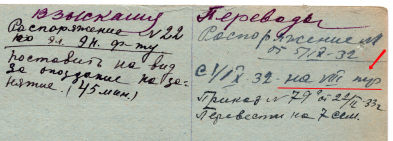 Взыскания
Распоряжение №22
по эл. эн. ф-ту
поставить на вид
за опоздание на за-
нятие. (45 мин.)
Переводы
Распоряжение №
от 5/IX-32
с 1/IX 32 на VII
Приказ №79 от 22/II-33г
Перевести на 7 сем.